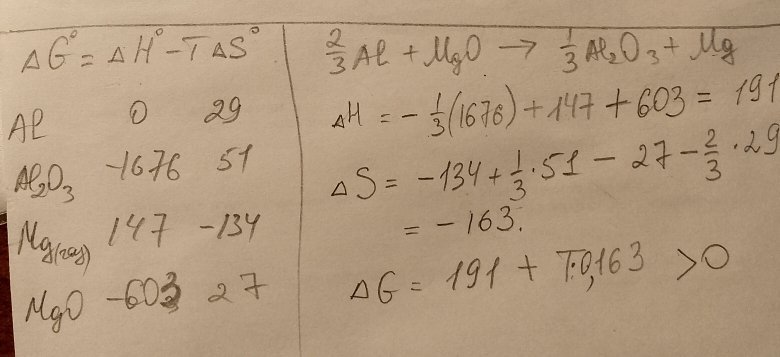 ΔG° = ΔH° - TΔS°
Al 0 29
Al₂O₃ -1676 51
Mg(газ) 147 -134
MgO -603 27
2/3 Al + MgO → 1/3 Al₂O₃ + Mg
ΔH = -1/3(1676) + 147 + 603 = 191
ΔS = -134 + 1/3 · 51 - 27 - 2/3 · 29
= -163.
ΔG = 191 + T·0,163 > 0